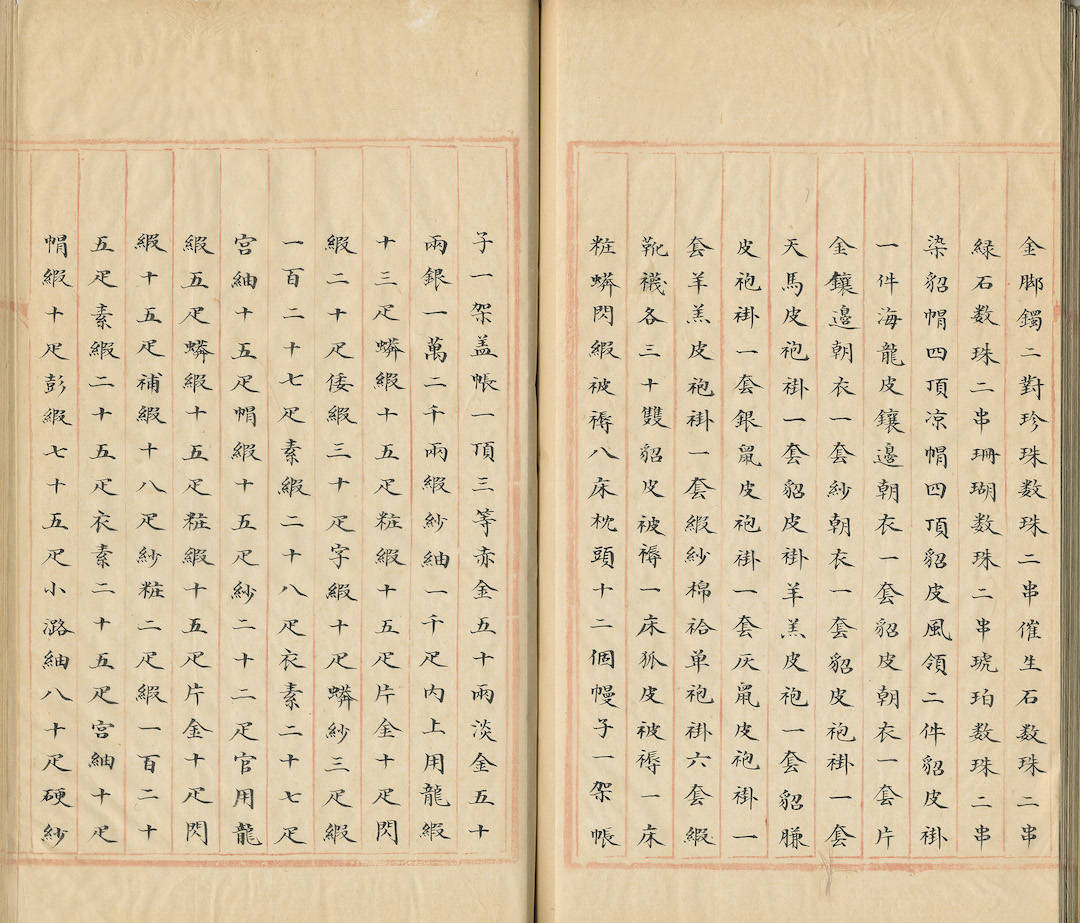 金脚鐲二對珍珠数珠二串催生石数珠二串
緑石数珠二串珊瑚数珠二串琥珀数珠二串
染貂帽四頂凉帽四頂貂皮風領二件貂皮褂
一件海龍皮鑲邊朝衣一套貂皮朝衣一套片
金鑲邊朝衣一套紗朝衣一套貂皮袍褂一套
天馬皮袍褂一套貂皮褂羊羔皮袍一套貂膁
皮袍褂一套銀鼠皮袍褂一套灰鼠皮袍褂一
套羊羔皮袍褂一套緞紗棉袷单袍褂六套緞
靴襪各三十雙貂皮被褥一床狐皮被褥一床
粧蟒閃緞被褥八床枕頭十二個幔子一架帳
子一架盖帳一頂三等赤金五十兩淡金五十
兩銀一萬二千兩緞紗紬一千疋内上用龍緞
十三疋蟒緞十五疋粧緞十五疋片金十疋閃
緞二十疋倭緞三十疋字緞十疋蟒紗三疋緞
一百二十七疋素緞二十八疋衣素二十七疋
宮紬十五疋帽緞十五疋紗二十二疋官用龍
緞五疋蟒緞十五疋粧緞十五疋片金十疋閃
緞十五疋補緞十八疋紗粧二疋緞一百二十
五疋素緞二十五疋衣素二十五疋宮紬十疋
帽緞十疋彭緞七十五疋小潞紬八十疋硬紗